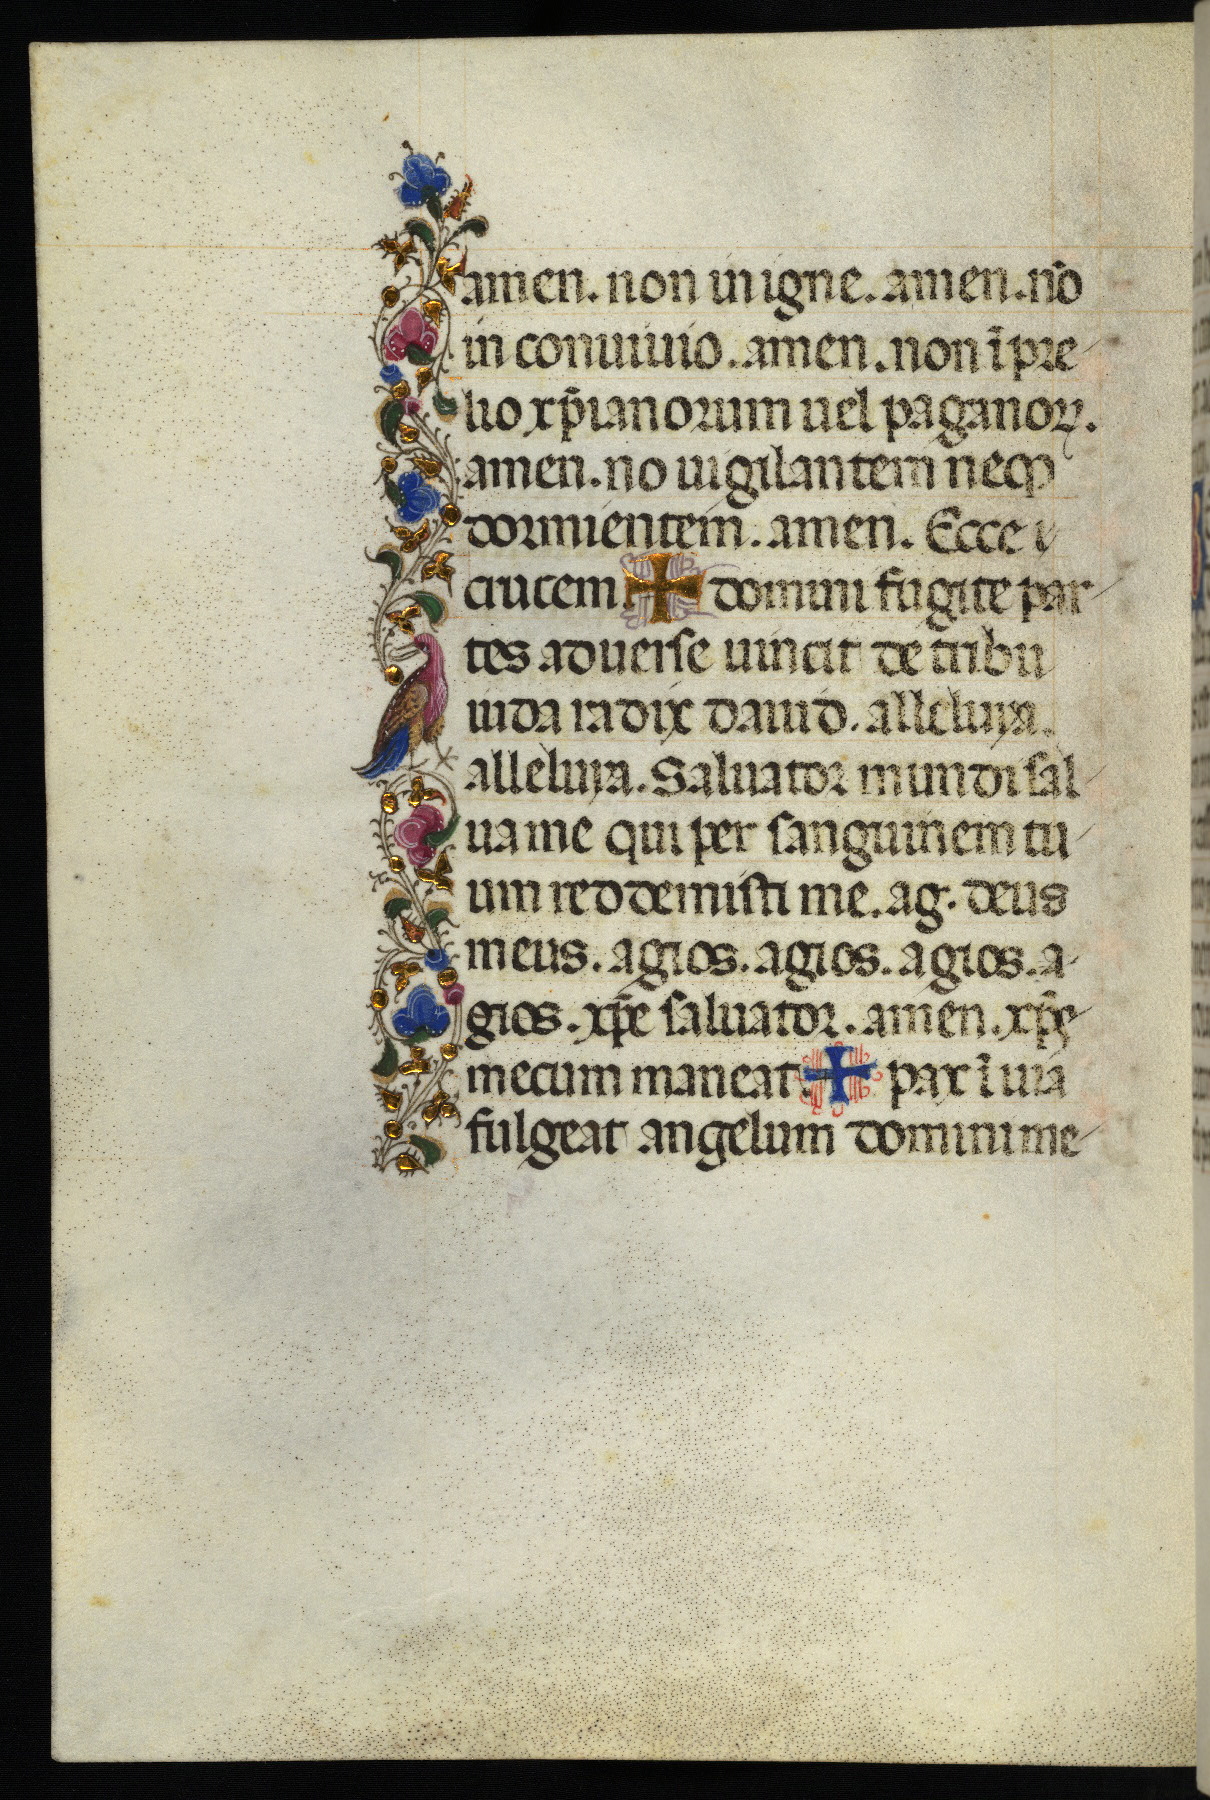 amen. non in igne. amen. nō
in conuiuio. amen. non ī pre
lio xp̄ianorum uel paganoꝝ.
amen. no uigilantem neqꝫ
dormientem. amen. Ecce
crucem ✠ domini fugite par
tes aduerse uincit de tribu
iuda radix dauid. alleluya.
alleluya. Saluator mundi sal
ua me qui per sanguinem tu
um reddemisti me. ag. deus
meus. agios. agios. agios. a
gios. xp̄e saluator. amen. xp̄e
mecum maneat. ✠ pax ī uia
fulgeat angelum domini me